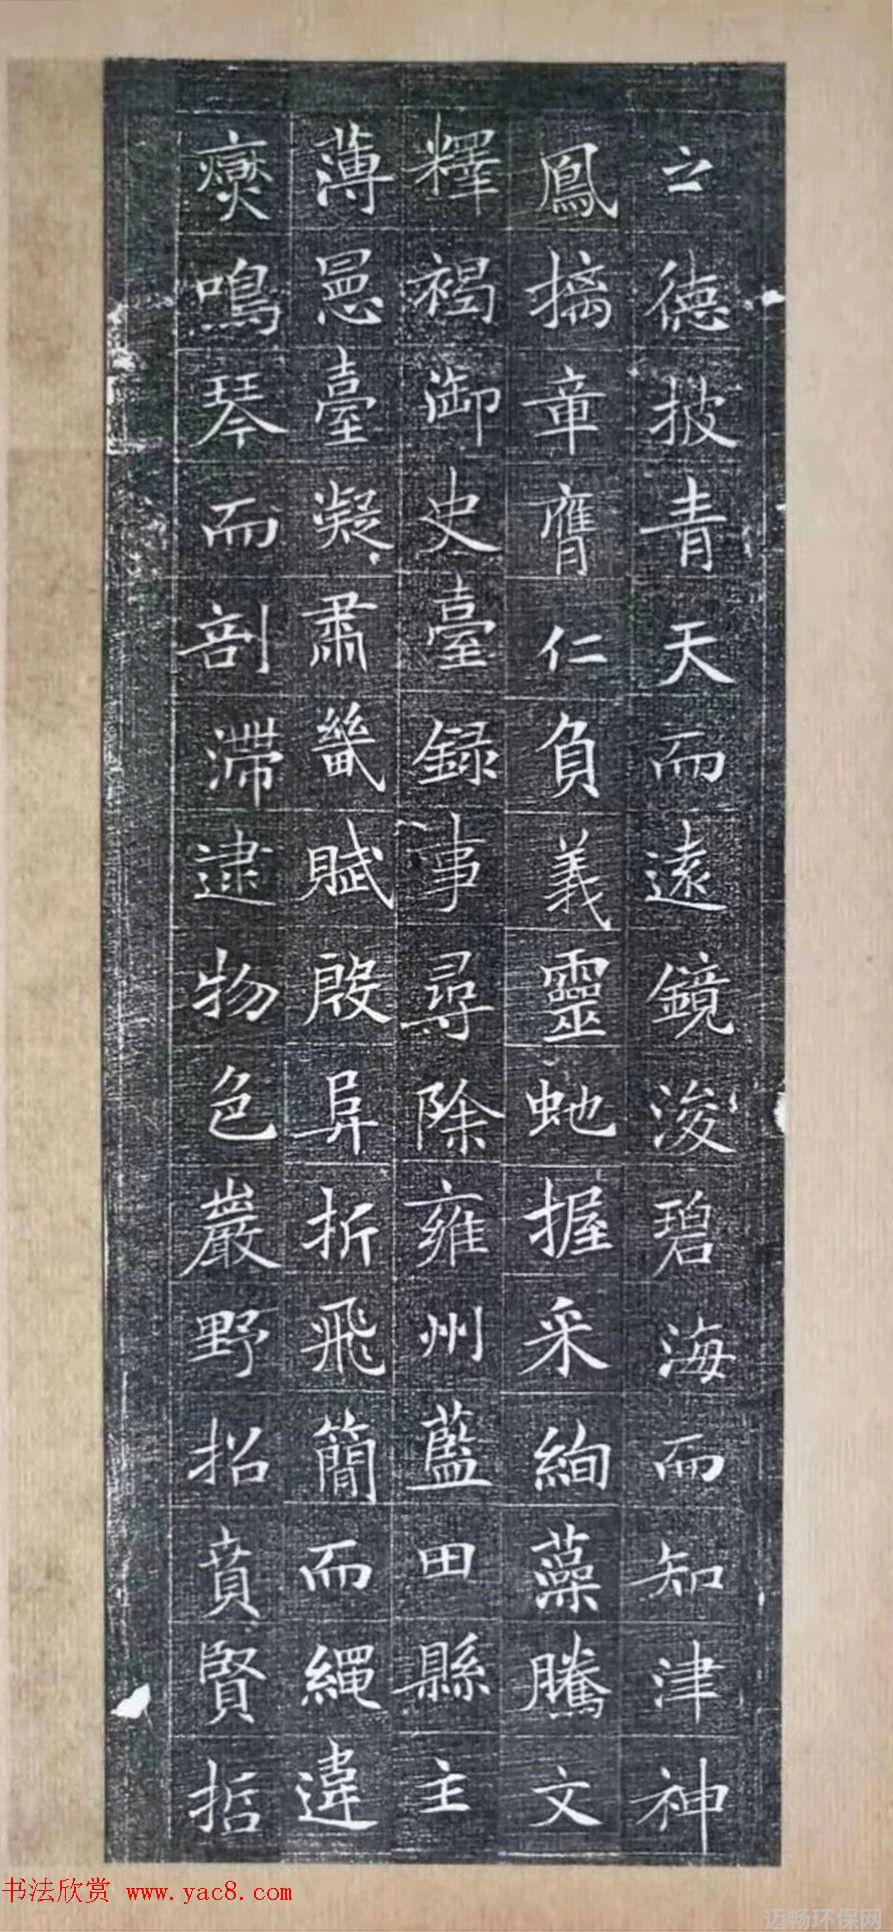 之德披青天而遠鏡浚碧海而知津神
鳳摛章膺仁負義靈虵握采絢藻騰文
釋褐御史臺録事尋除雍州藍田縣主
薄臺凝肅畿賦殷异折飛簡而繩違
鳴琴而剖滯逮物色巖野招賁賢哲
书法欣赏 www.yac8.com
迈畅环保网